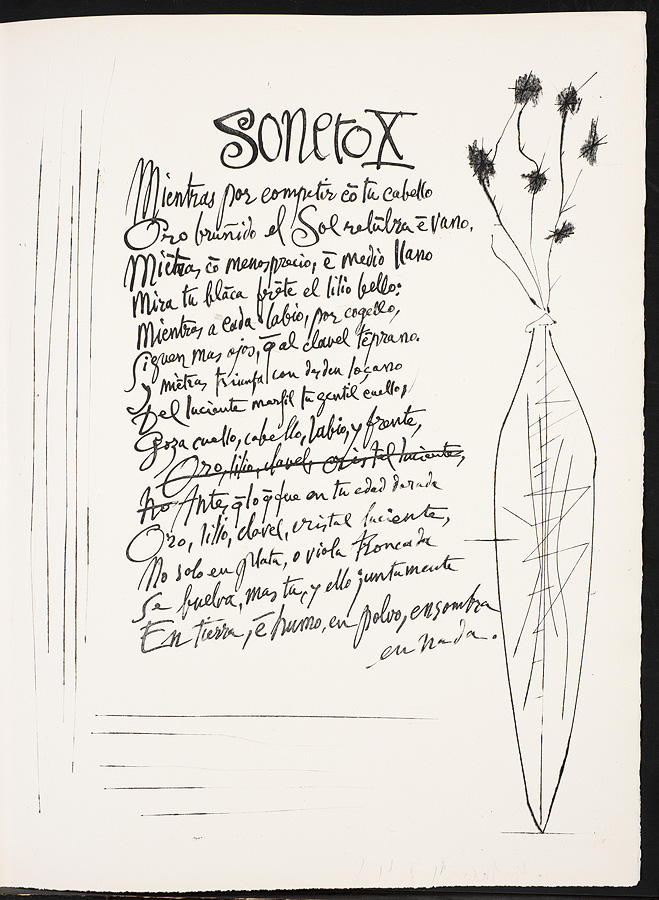 Soneto X
Mientras por competir cõ tu cabello
Oro bruñido el Sol relũbra ẽ vano,
Miẽtras cõ menosprecio, ẽ medio llano
Mira tu blãca frẽte el lilio bello:
Mientras a cada labio, por cogello,
Siguen mas ojos, q̃ al clavel tẽprano.
y miẽtras triunfa con desden loçano
Del luciente marfil tu gentil cuello,
Goza cuello, cabello, labio, y frente,
Oro, lilio, clavel, cristal luciente,
No Ante, q̃ lo q̃ fue en tu edad dorada
Oro, lilio, clavel, cristal luciente,
No solo en plata, o viola troncada
Se buelva, mas tu, y ello juntamente
En tierra, ẽ humo, en polvo, en sombra
en nada.